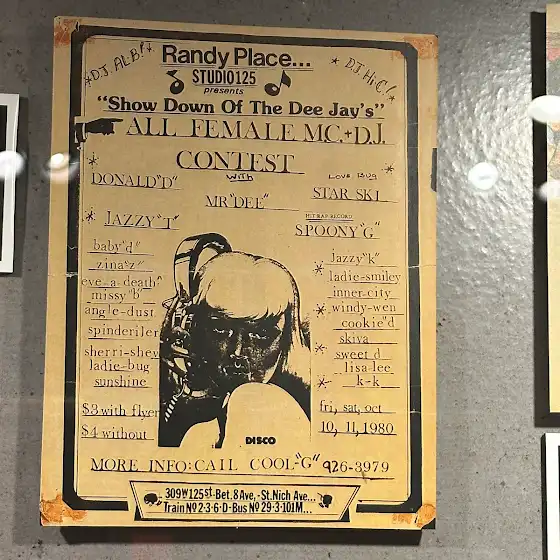 D.J. AL-B!
Randy Place...
D.J. Hi-C!
STUDIO 125
presents
"Show Down Of The Dee Jay's"
ALL FEMALE M.C.+D.J.
CONTEST
WITH
DONALD"D"
MR"DEE"
LOVE BUG
STAR SKI
JAZZY"T"
HIT RAP RECORD
SPOONY"G"
baby"d"
zina"z"
eve-a-death"
missy"b"
angle-dust
spinderiler
sherri-shev
ladie-bug
sunshine
jazzy"k"
ladie-smiley
inner-city
windy-wen
cookie"d
skiya
sweet d
lisa-lee
k-k
$3 with flyer
$4 without
fri, sat, oct
10, 11, 1980
DISCO
MORE INFO: CAIL COOL-"G" 926-3979
309 W 125 st- Bet. 8 Ave, -St. Nich Ave...
Train Nº 2·3·6·D-Bus Nº 29·3·101M...